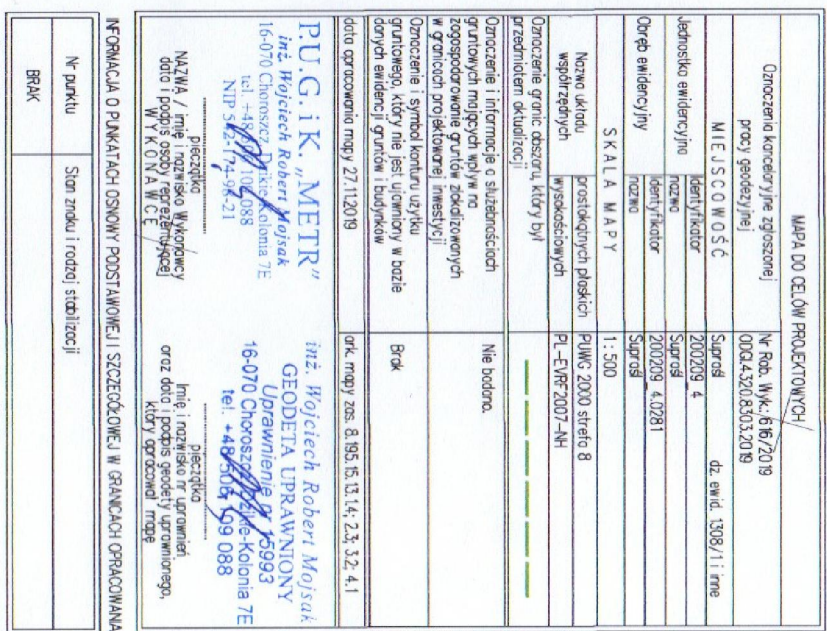 MAPA DO CELÓW PROJEKTOWYCH
Oznaczenia kancelaryjne zgłoszonej
pracy geodezyjnej
Nr Rob. Wyk.: 616/2019
ODGI.4320.8303.2019
MIEJSCOWOŚĆ
Supraśl dz. ewid. 1308/1 i inne
Jednostka ewidencyjna
identyfikator 200209_4
nazwa Supraśl
Obręb ewidencyjny
identyfikator 200209_4.0281
nazwa Supraśl
SKALA MAPY 1: 500
Nazwa układu
współrzędnych
prostokątnych płaskich PUWG 2000 strefa 8
wysokościowych PL-EVRF2007-NH
Oznaczenie granic obszaru, który był
przedmiotem aktualizacji
Oznaczenie i informacje o służebnościach
gruntowych mających wpływ na
zagospodarowanie gruntów zlokalizowanych
w granicach projektowanej inwestycji
Nie badano.
Oznaczenie i symbol konturu użytku
gruntowego, który nie jest ujawniony w bazie
danych ewidencji gruntów i budynków
Brak
data opracowania mapy 27.11.2019 ark. mapy zas. 8.195.15.13.1.4; 2.3; 3.2; 4.1
P.U.G. i K. „METR”
inż. Wojciech Robert Mojsak
16-070 Choroszcz, Dzikie-Kolonia 7E
tel. +48 109 088
NIP 542-174-96-21
pieczątka
NAZWA / imię i nazwisko Wykonawcy
data i podpis osoby reprezentującej
WYKONAWCĘ
inż. Wojciech Robert Mojsak
GEODETA UPRAWNIONY
Uprawnienie nr 15993
16-070 Choroszcz, Dzikie-Kolonia 7E
tel. +48 506 109 088
pieczątka
Imię i nazwisko nr uprawnień
oraz data i podpis geodety uprawnionego,
który opracował mapę
INFORMACJA O PUNKTACH OSNOWY PODSTAWOWEJ I SZCZEGÓŁOWEJ W GRANICACH OPRACOWANIA
Nr punktu Stan znaku i rodzaj stabilizacji
BRAK